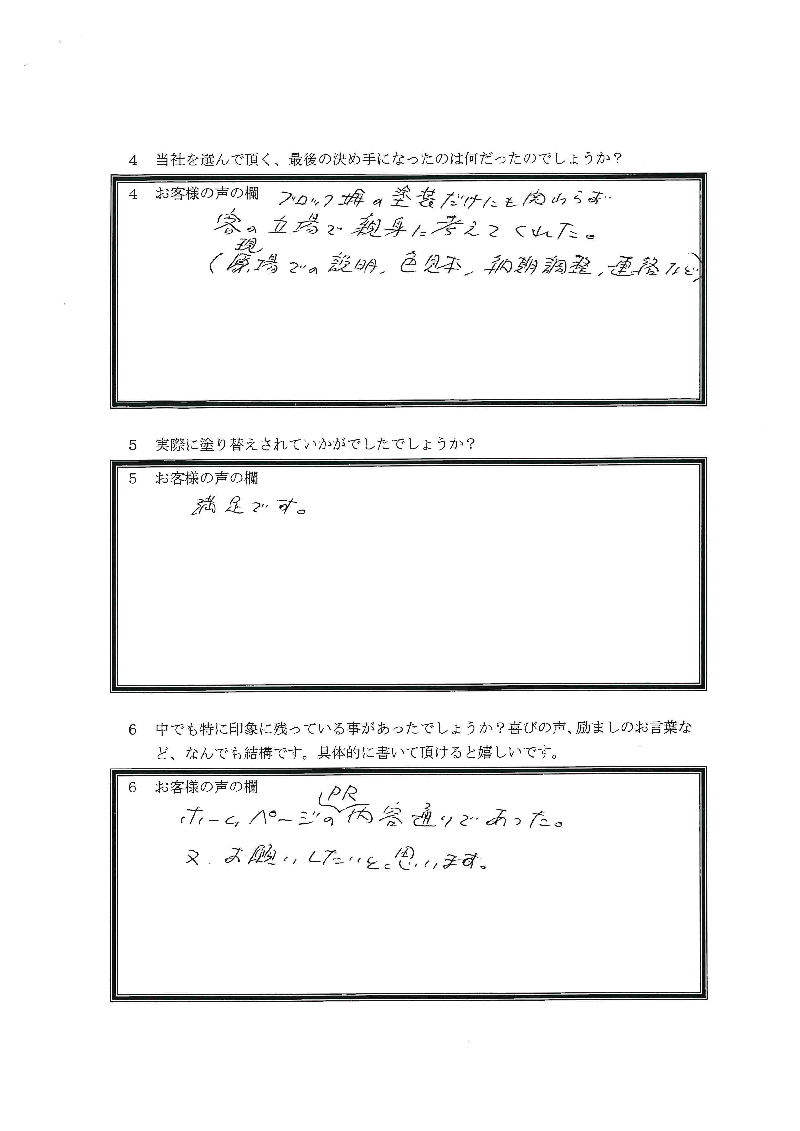 4 当社を選んで頂く、最後の決め手になったのは何だったのでしょうか？
4 お客様の声の欄
ブロック塀の塗装だけにも関わらず
客の立場で親身に考えてくれた。
(現場での説明, 色見本, 納期調整, 連絡など)
5 実際に塗り替えされていかがでしたでしょうか？
5 お客様の声の欄
満足です。
6 中でも特に印象に残っている事があったでしょうか？喜びの声、励ましのお言葉な
ど、なんでも結構です。具体的に書いて頂けると嬉しいです。
6 お客様の声の欄
ホームページのPR内容通りであった。
又、お願いしたいと思います。